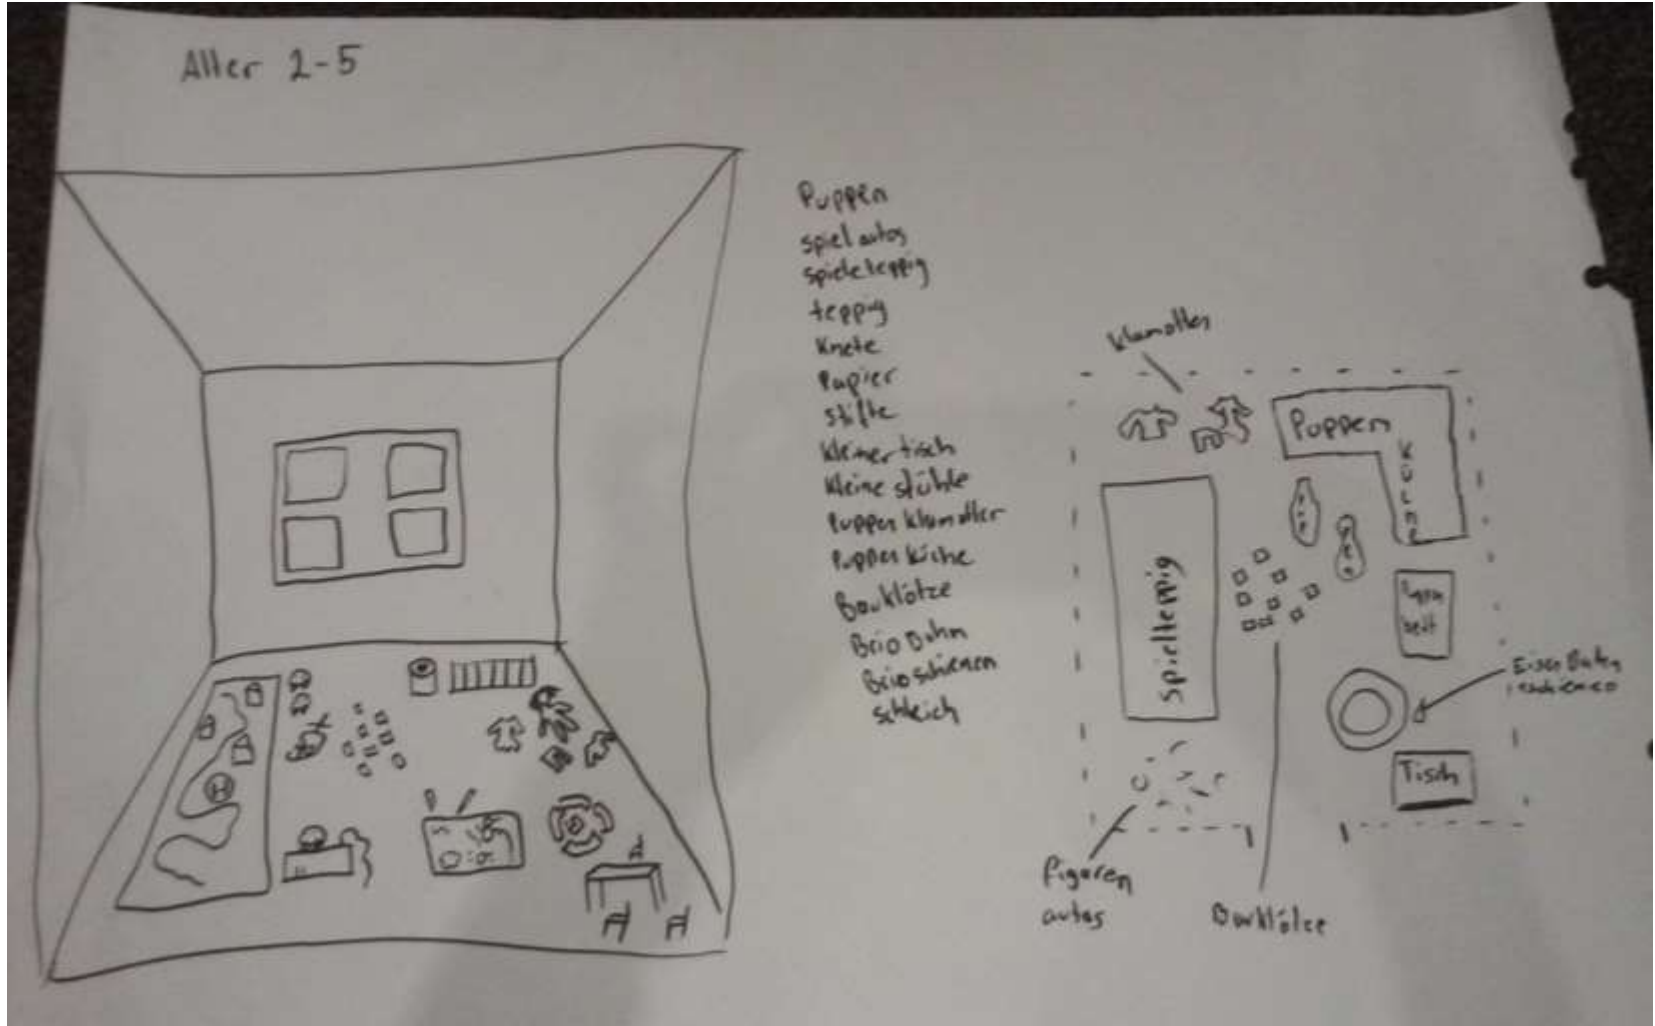 Alter 2-5
Puppen
spielautos
spieleteppig
teppig
Knete
Papier
stifte
kleiner tisch
kleine stühle
Puppen klamotten
Puppen küche
Bauklötze
Brio Bahn
Brio schienen
schleich
klamotten
Puppen
KÜCHE
spielteppig
Puppen
bett
Eisen Bahn
schienen
Tisch
figuren
autos
Bauklötze